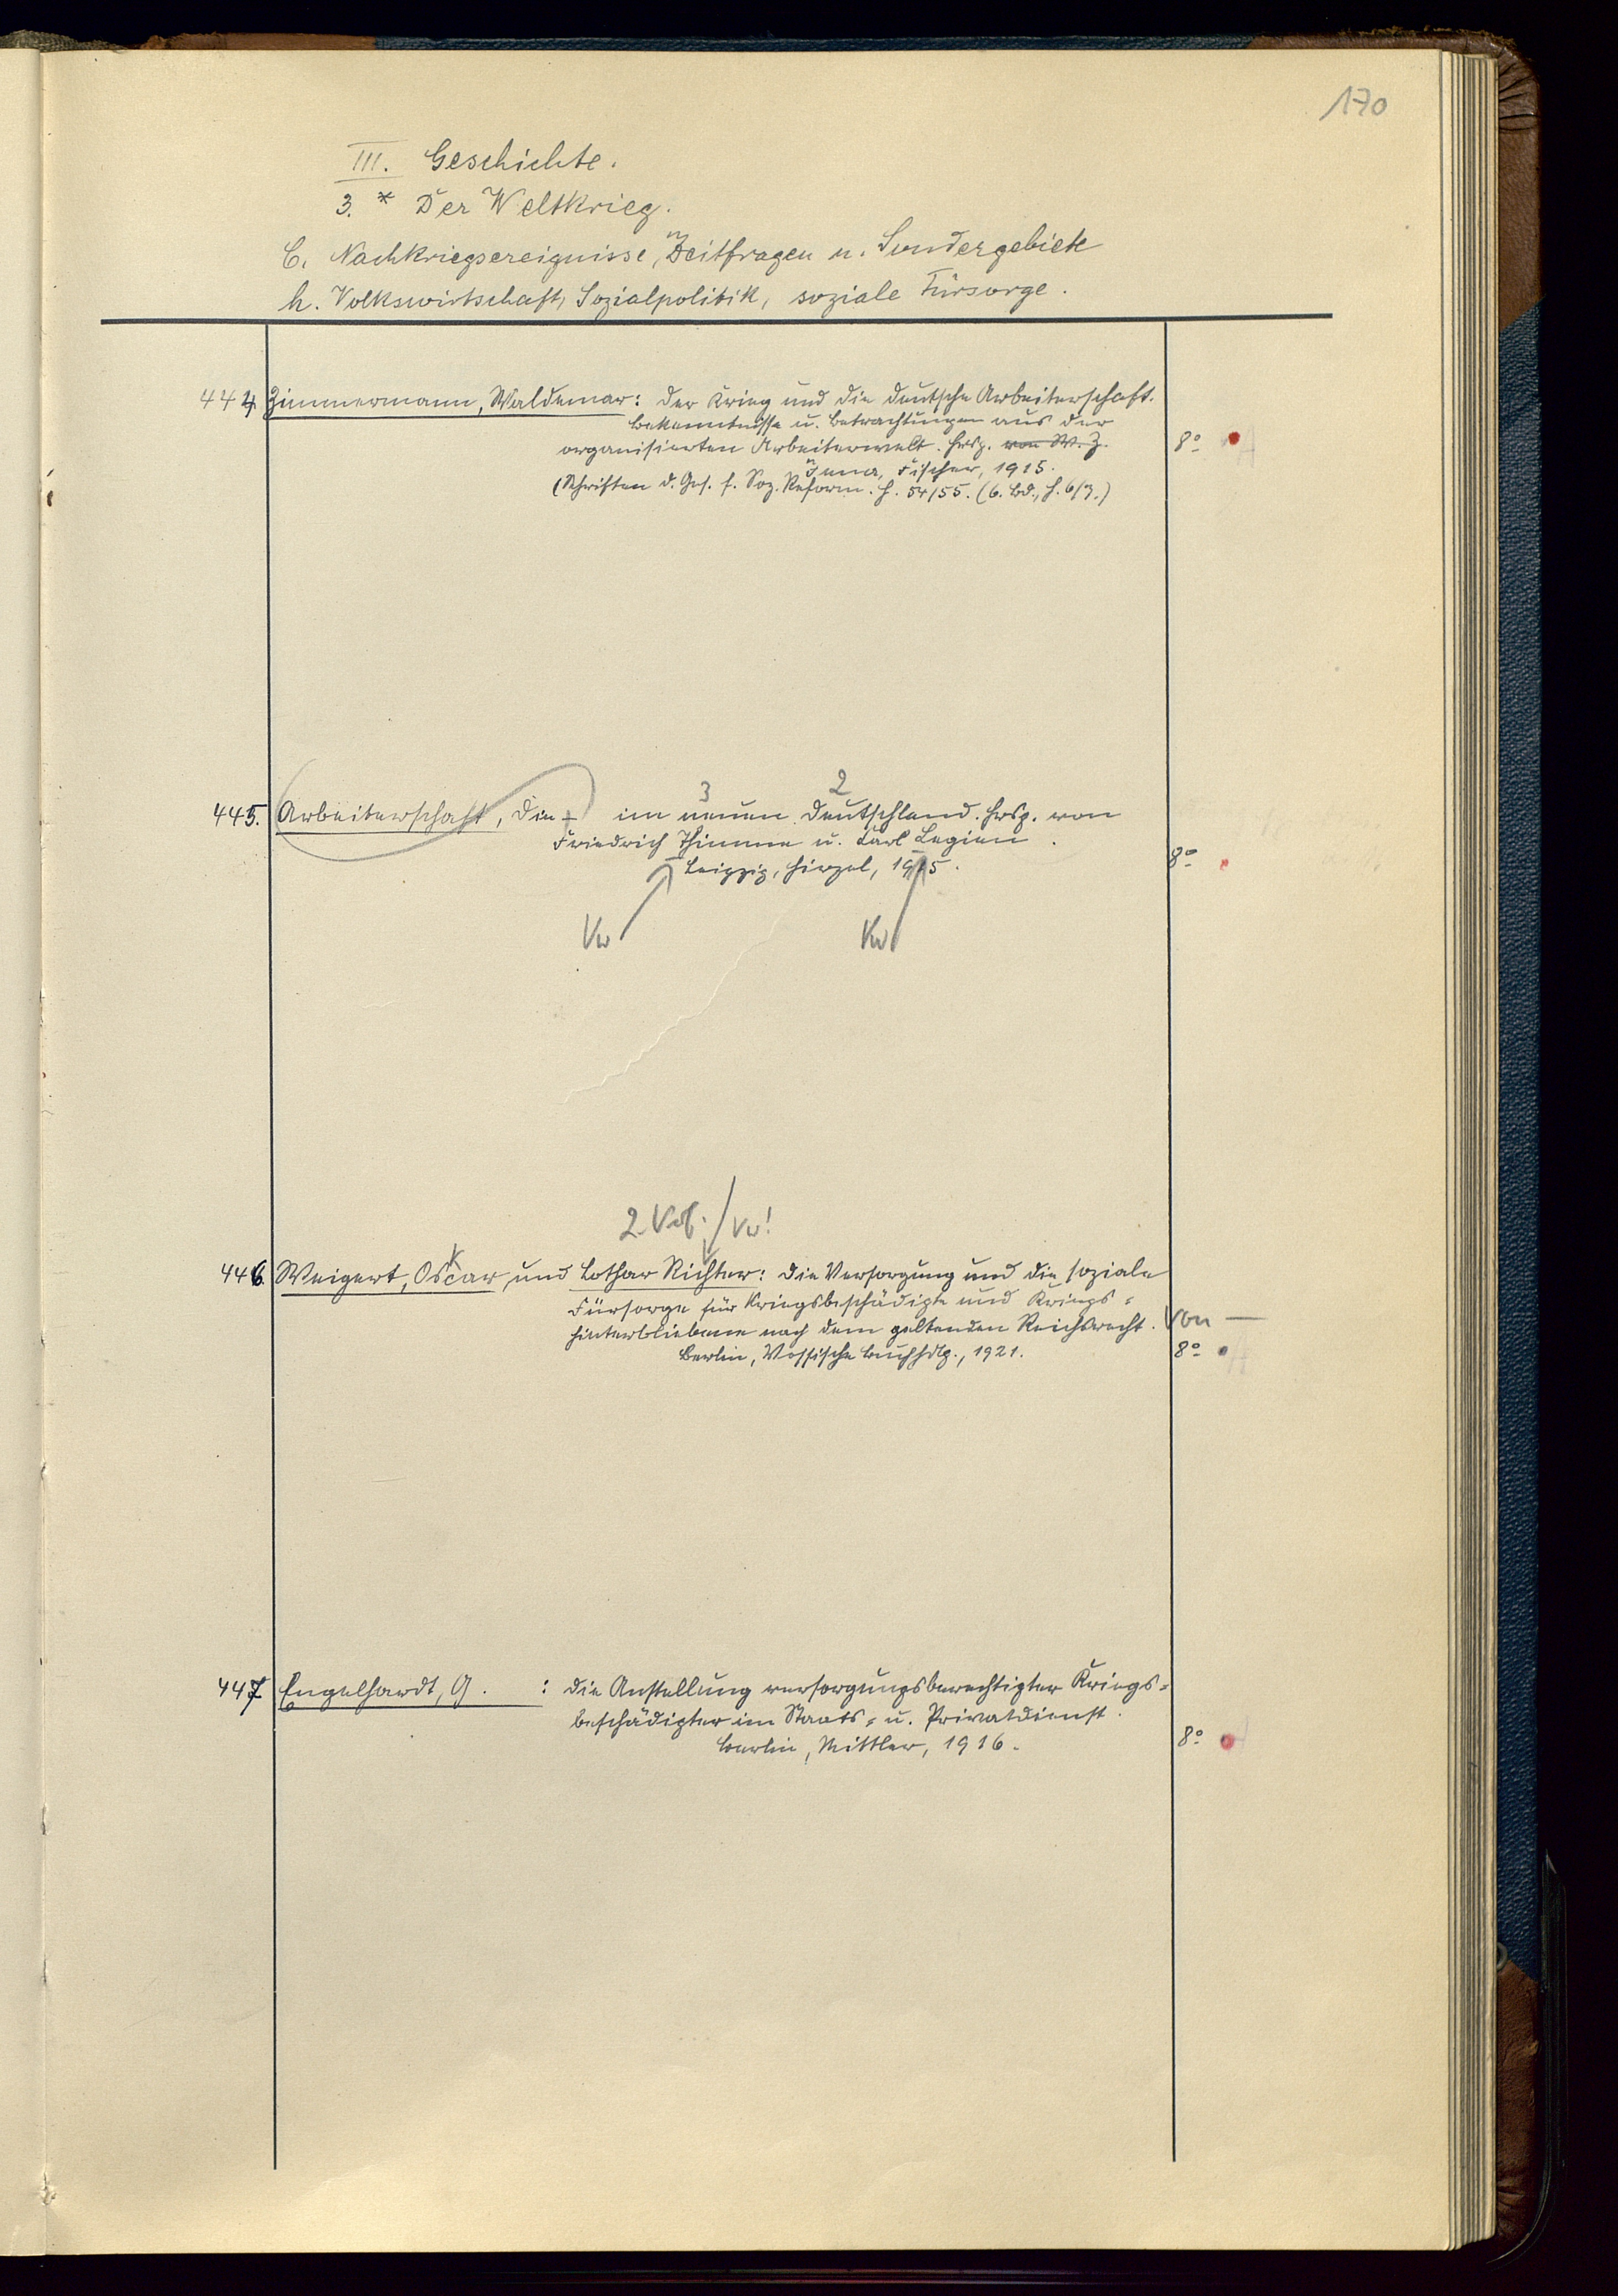 170
III. Geschichte.
3.* Der Weltkrieg.
C. Nachkriegsereignisse, Zeitfragen u. Sondergebiete
h. Volkswirtschaft, Sozialpolitik, soziale Fürsorge.
444 Zimmermann, Waldemar: Der Krieg und die deutsche Arbeiterschaft.
Bekenntnisse u. Betrachtungen aus der
organisierten Arbeiterwelt. Hrsg. von W. Z. 8°
Jena, Fischer, 1915.
(Schriften d. Ges. f. Soz. Reform. H. 54/55. (6. Bd., H. 6/7.)
3 2
445. Arbeiterschaft, Die + im neuen Deutschland. Hrsg. von
Friedrich Thimme u. Carl Legien.
Leipzig, Hirzel, 1915. 8°
2. Verf. / Vw!
k
446 Weigert, Oscar, und Lothar Richter: Die Versorgung und die soziale
Fürsorge für Kriegsbeschädigte und Kriegs-
hinterbliebene nach dem geltenden Reichsrecht. Von —
Berlin, Vossische Buchhdlg., 1921. 8°
447 Engelhardt, G. : Die Anstellung versorgungsberechtigter Kriegs-
beschädigter im Staats- u. Privatdienst.
Berlin, Mittler, 1916. 8°